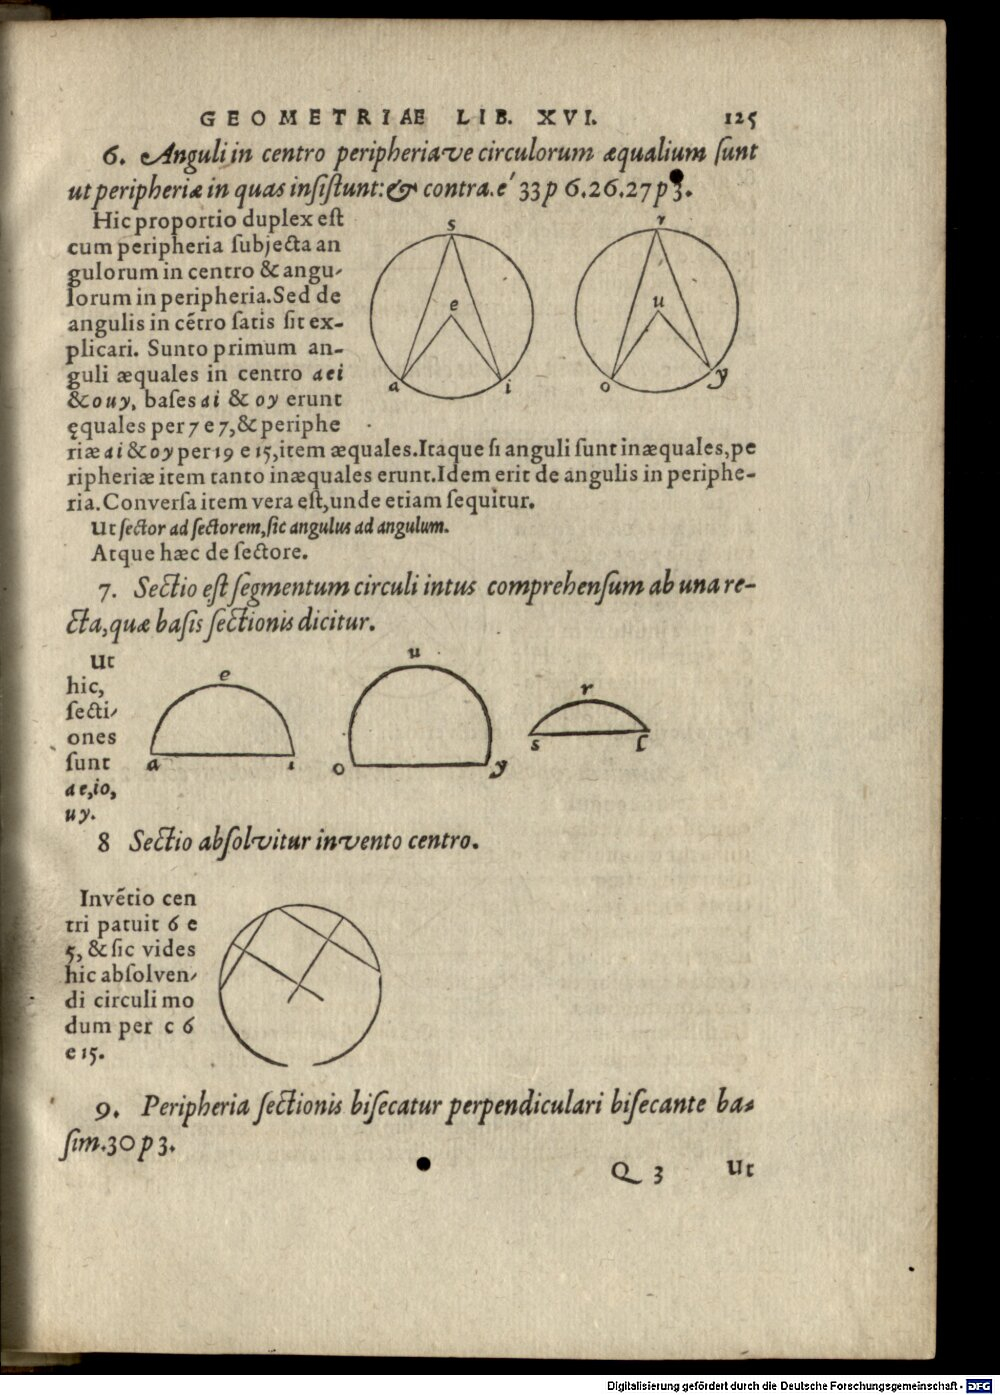 GEOMETRIÆ LIB. XVI. 125
6. Anguli in centro peripheriave circulorum æqualium ſunt
ut peripheriæ in quas inſiſtunt: & contra. é 33 p 6. 26. 27 p 3.
Hic proportio duplex eſt
cum peripheria ſubjecta an
gulorum in centro & angu-
lorum in peripheria. Sed de
angulis in cētro ſatis ſit ex-
plicari. Sunto primum an-
guli æquales in centro aei
& ouy, baſes ai & oy erunt
ęquales per 7 e 7, & periphe
riæ ai & oy per 19 e 15, item æquales. Itaque ſi anguli ſunt inæquales, pe
ripheriæ item tanto inæquales erunt. Idem erit de angulis in periphe-
ria. Converſa item vera eſt, unde etiam ſequitur.
s
e
a
i
r
u
o
y
Ut ſector ad ſectorem, ſic angulus ad angulum.
Atque hæc de ſectore.
7. Sectio eſt ſegmentum circuli intus comprehenſum ab una re-
cta, quæ baſis ſectionis dicitur.
Ut
hic,
ſecti-
ones
ſunt
ae, io,
uy.
e
a
i
u
o
y
r
s
ſ
8 Sectio abſolvitur invento centro.
Invētio cen
tri patuit 6 e
5, & ſic vides
hic abſolven-
di circuli mo
dum per c 6
e 15.
9. Peripheria ſectionis biſecatur perpendiculari biſecante ba-
ſim. 30 p 3.
Q 3 Ut
Digitalisierung gefördert durch die Deutsche Forschungsgemeinschaft - DFG